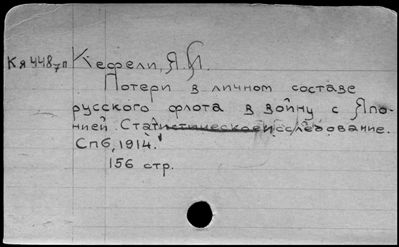 Кя 448/7п Кефели, Я. И.
Потери в личном составе
русского флота в войну с Япо-
нией. Статистическое исследование.
Спб, 1914.
156 стр.